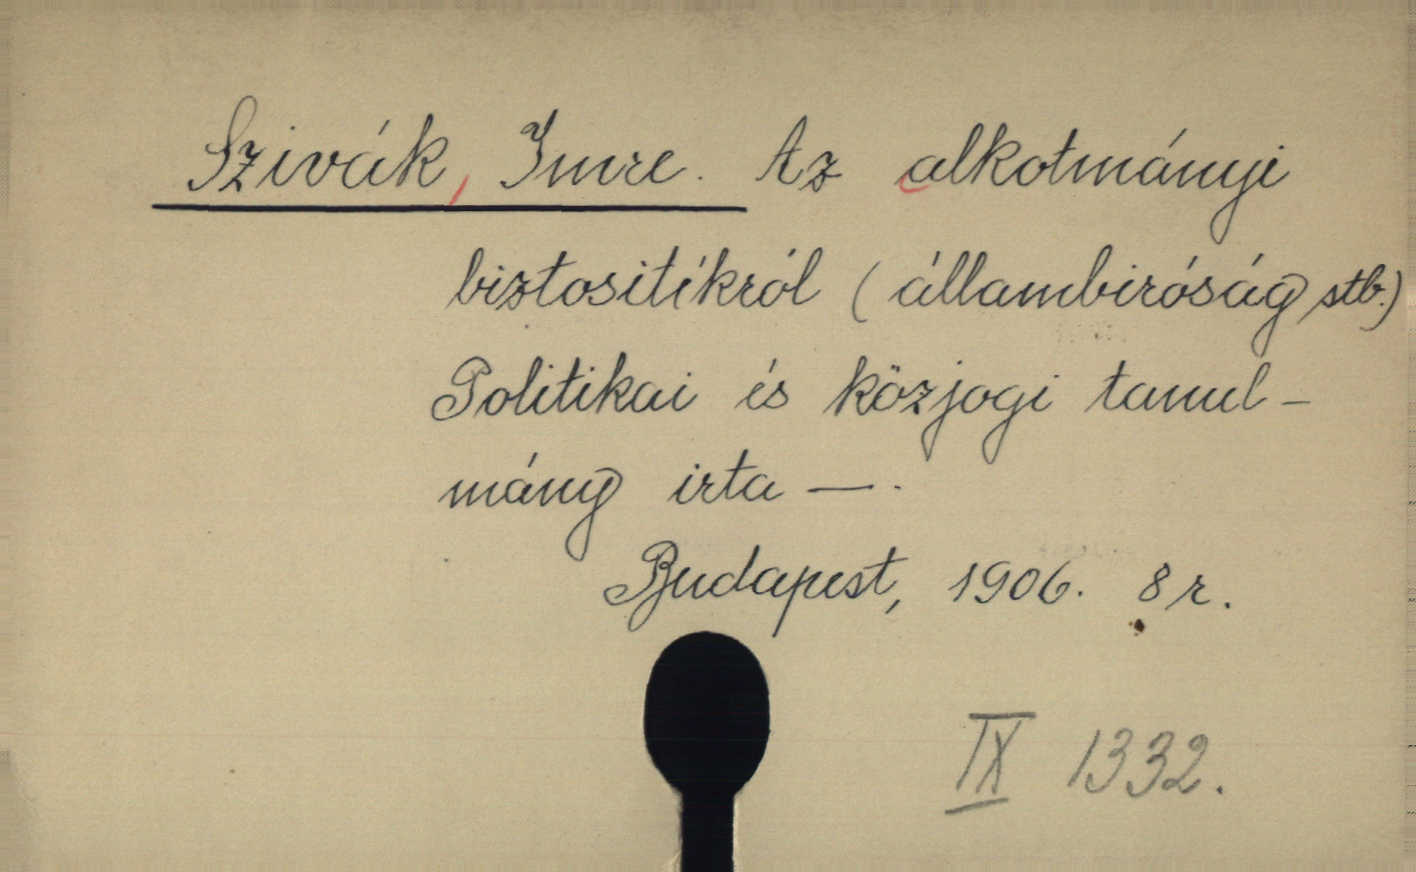 Szivák, Imre. Az alkotmányi
biztositékról (állambiróság stb.)
Politikai és közjogi tanul-
mány irta —.
Budapest, 1906. 8 r.
IX 1332.